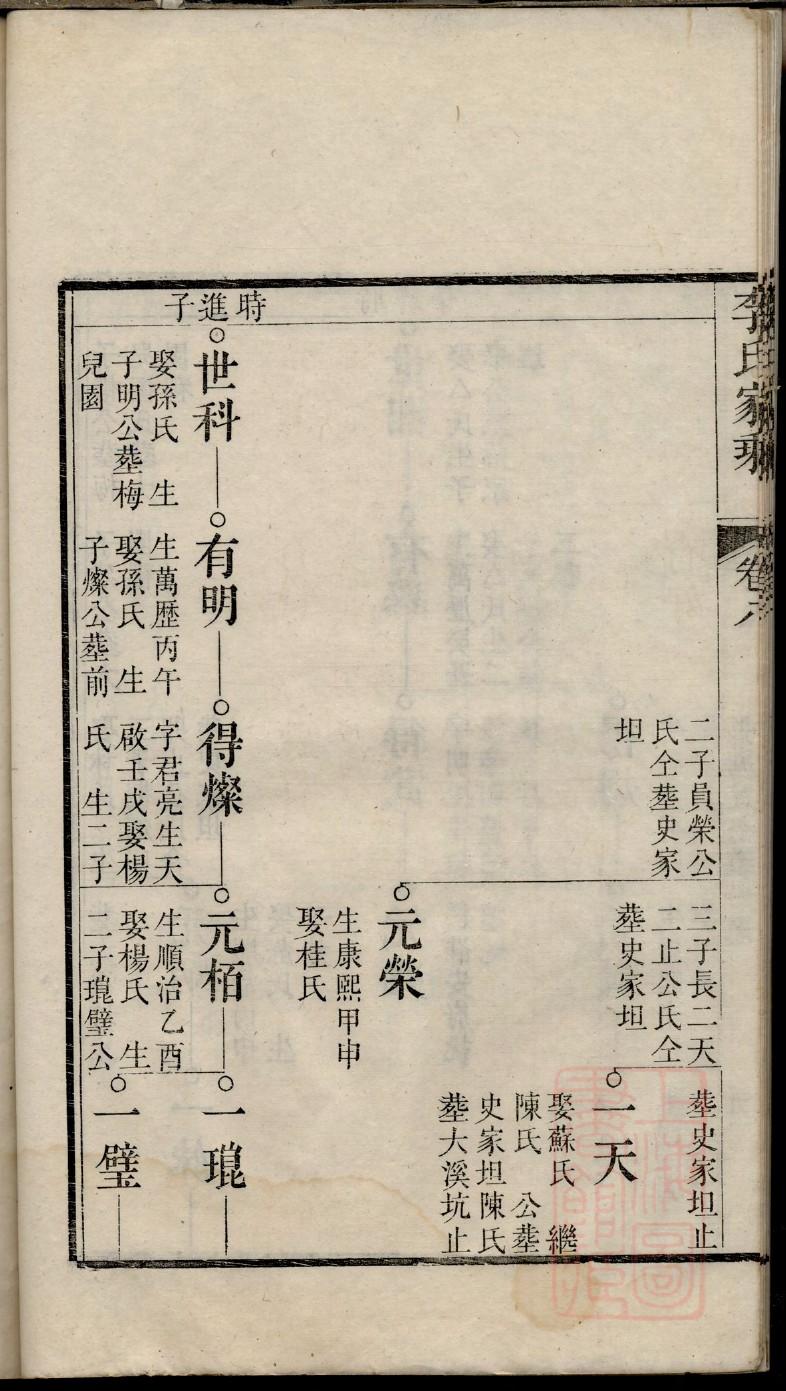 李氏家乘
卷六
二子員榮公
氏仝塟史家
坦
三子長二天
二止公氏仝
塟史家坦
塟史家坦止
一天
娶蘇氏　繼
陳氏　公塟
史家坦陳氏
塟大溪坑止
元榮
生康熙甲申
娶桂氏
時進子
世科
娶孫氏　生
子明公塟梅
兒園
有明
生萬歷丙午
娶孫氏　生
子燦公塟前
得燦
字君亮生天
啟壬戌娶楊
氏　生二子
元栢
生順治乙酉
娶楊氏　生
二子琨璧公
一琨
一璧